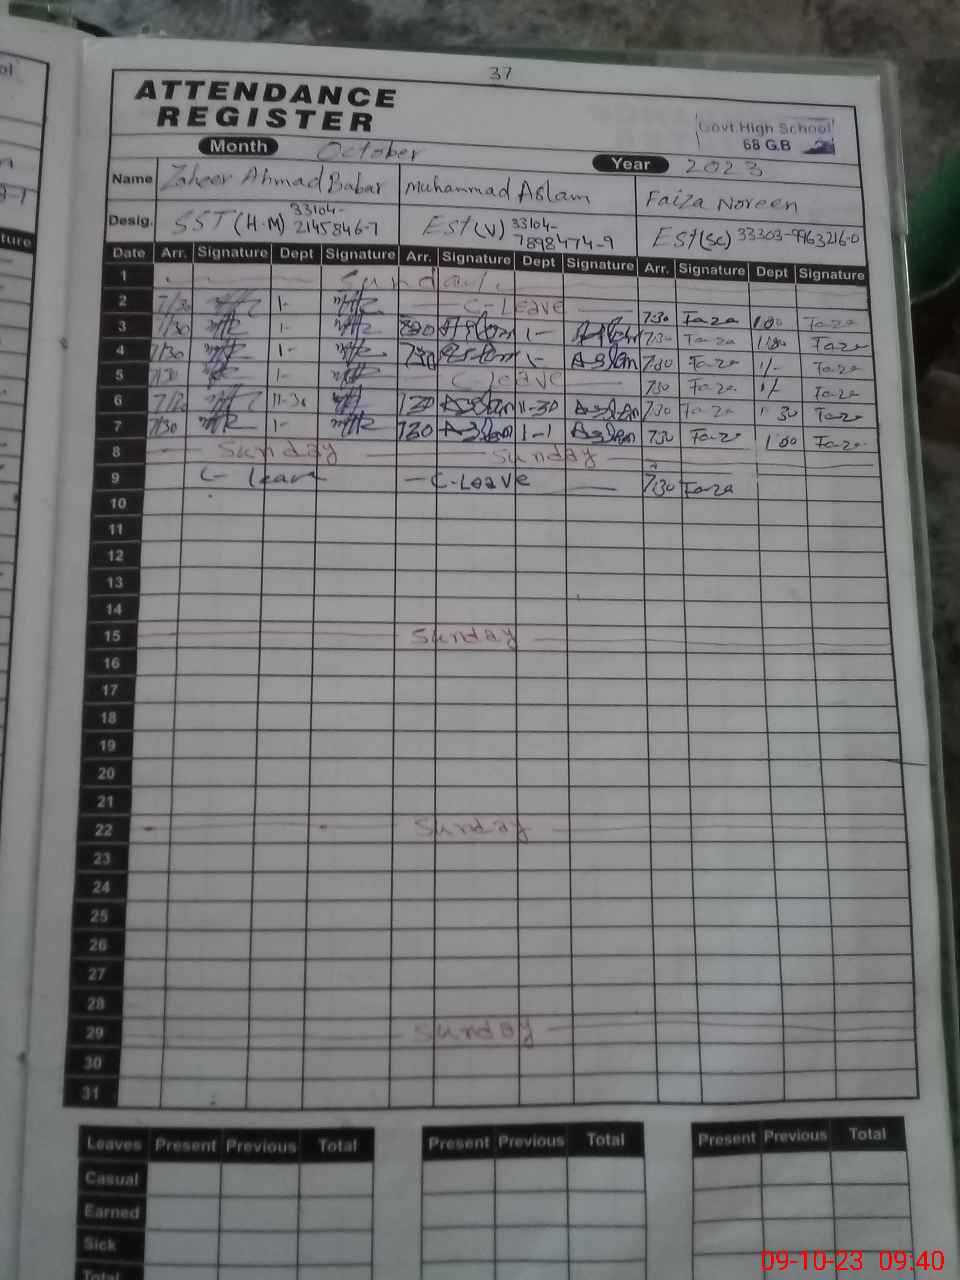 37
ATTENDANCE
REGISTER
Govt. High School
68 G.B
Month October Year 2023
Name Zaheer Ahmad Babar Muhammad Aslam Faiza Noreen
Desig. SST (H.M) 33104-2145846-7 Est (V) 33104-7898474-9 Est (SC) 33303-9963216-0
Date Arr. Signature Dept Signature Arr. Signature Dept Signature Arr. Signature Dept Signature
1 Sunday
2 7/30 1- C-Leave 730 Faza 100 Faza
3 7/30 1- 730 Aslam 1- Aslam 730 Faza 100 Faza
4 7/30 1- 730 Aslam 1- Aslam 730 Faza 1/- Faza
5 7/30 1- C leave 730 Faza 1/- Faza
6 7/30 11-30 730 Aslam 11-30 Aslam 730 Faza 11 30 Faza
7 7/30 1- 730 Aslam 1-1 Aslam 730 Faza 100 Faza
8 Sunday Sunday
9 C- leave C-Leave 730 Faza
10
11
12
13
14
15 Sunday
16
17
18
19
20
21
22 Sunday
23
24
25
26
27
28
29 Sunday
30
31
Leaves Present Previous Total Present Previous Total Present Previous Total
Casual
Earned
Sick
Total
09-10-23 09:40